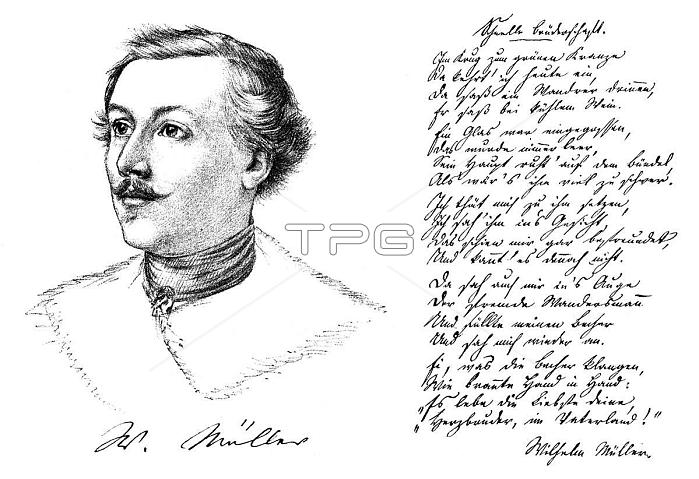 Schnelle Brüderschaft.
Im Krug zum grünen Kranze
Da kehrt' ich heute ein,
Da saß ein Wandrer drinnen,
Er saß bei kühlem Wein.
Ein Glas war eingegossen,
Das wurde nimmer leer,
Sein Haupt ruht' auf dem Bündel
Als wär's ihm viel zu schwer.
Ich thät mich zu ihm setzen,
Ich sah' ihm in's Gesicht,
Das schien mir gar befreundet,
Und kannt' es dennoch nicht.
Da sah auch mir in's Auge
Der fremde Wandersmann
Und füllte meinen Becher
Und sah mich wieder an.
Ei, was die Becher klangen,
Wie brannte Hand in Hand:
"Es lebe die Liebste deine,
"Herzbruder, im Vaterland!"
Wilhelm Müller.
W. Müller
TPG